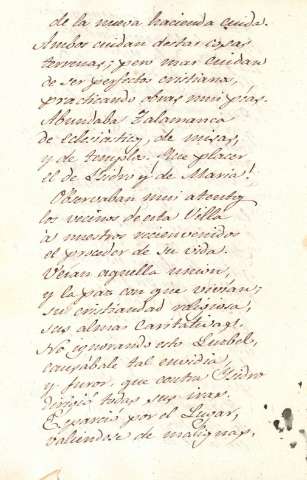 de la nueva hacienda cuida.
Ambos cuidan destas cosas
terrenas; pero mas cuidan
de ser perfectos cristianos,
practicando obras mui pias.
Abundaba Talamanca
de Eclesiásticos, de misas,
y de templos. Que placer
el de Isidro y de Maria!
Observaban mui atentos
los vecinos de esta Villa
à nuestros recienvenidos
el proceder de su vida.
Veían aquella union,
y la paz con que vivian;
su cristiandad religiosa,
sus almas caritativas.
No ignorando esto Luzbel,
causábale tal envidia
y furor, que contra Isidro
dirigió todas sus iras.
Esparció por el Lugar,
valiendose de malignas,